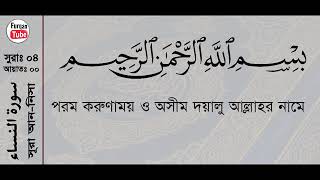 Furqan
Tube
সুরাঃ ০৪
আয়াতঃ ০০
سورة النساء
সুরা আন-নিসা
بِسْمِ ٱللَّهِ ٱلرَّحْمَٰنِ ٱلرَّحِيمِ
পরম করুণাময় ও অসীম দয়ালু আল্লাহর নামে